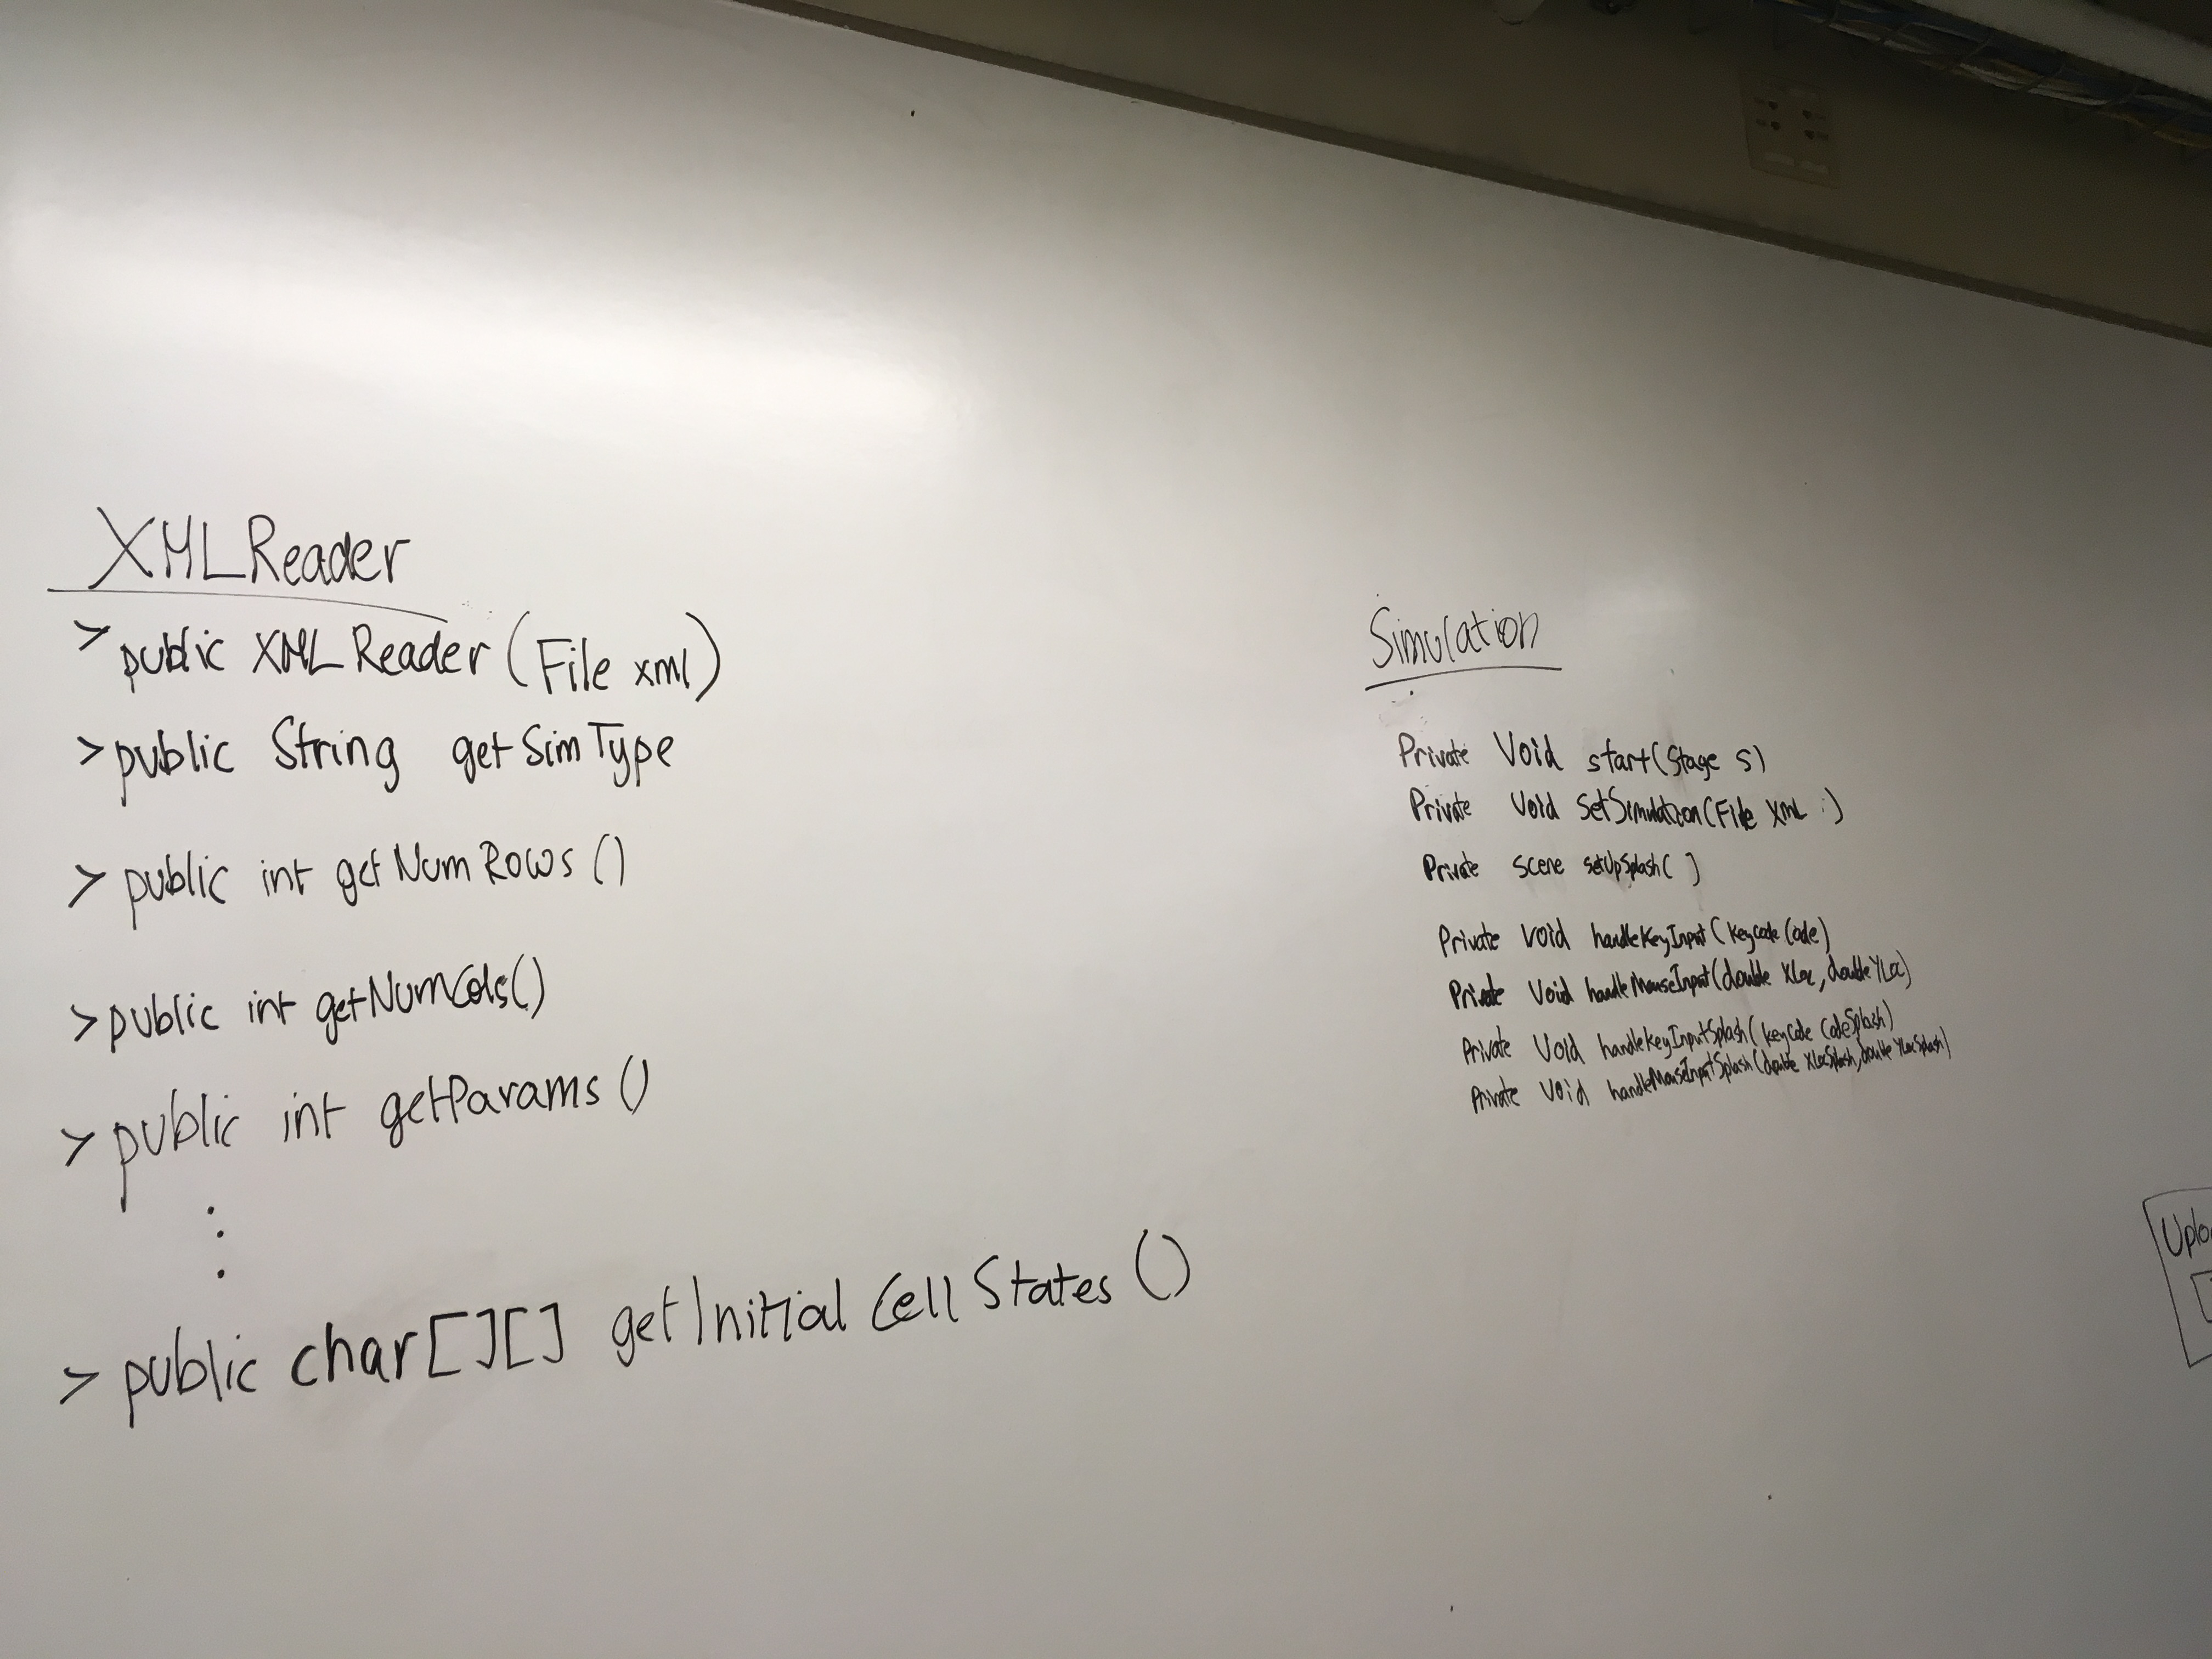 XMLReader
> public XMLReader (File xml)
> public String getSimType
> public int getNumRows ()
> public int getNumCols()
> public int getParams ()
> public char[][] getInitialCellStates ()
Simulation
Private Void start(Stage s)
Private Void SetSimulation(File XML )
Private Scene setUpSplash( )
Private Void handleKeyInput(KeyCode Code)
Private Void handleMouseInput(double XLoc, double YLoc)
Private Void handleKeyInputSplash(KeyCode CodeSplash)
Private Void handleMouseInputSplash(double XLocSplash, double YLocSplash)
Uplo